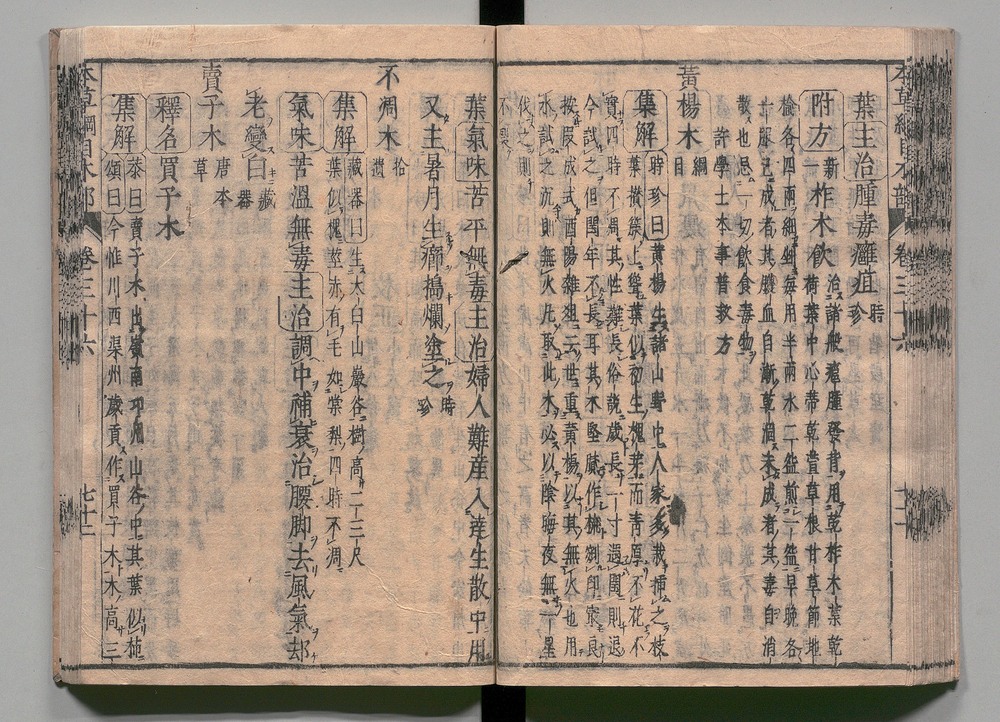 本草綱目木部 卷三十六 七十二
葉主治腫毒癰疽時珍
附方一新 柞木飲治諸般癰腫發背用乾柞木葉乾
荷葉中心蒂乾萱草根甘草節地
榆各四兩細剉每用半兩水二盌煎一盌早晚各
一服已成者其膿血自漸乾涸未成者其毒自消
散也忌一切飲食毒物
許學士本事普救方
黃楊木綱目
集解時珍曰黃楊生諸山野中人家多栽插之枝
葉攢簇上聳葉似初生槐芽而青厚不花不
實四時不凋其性難長俗說歲長一寸遇閏則退
今試之但閏年不長耳其木堅膩作梳剜印最良
按段成式酉陽雜俎云世重黃楊以其無火也用
水試之沉則無火凡取此木必以陰晦夜無一星
伐之則不裂
葉氣味苦平無毒主治婦人難產入達生散中用
又主暑月生癤搗爛塗之時珍
不凋木拾遺
集解藏器曰生太白山巖谷樹高二三尺
葉似槐莖赤有毛如棠梨四時不凋
氣味苦溫無毒主治調中補衰治腰脚去風氣却
老變白藏器
賣子木唐本草
釋名買子木
集解恭曰賣子木出嶺南邛州山谷中其葉似柿
頌曰今惟川西渠州歲貢作買子木木高三
本草綱目木部 卷三十六 七十三